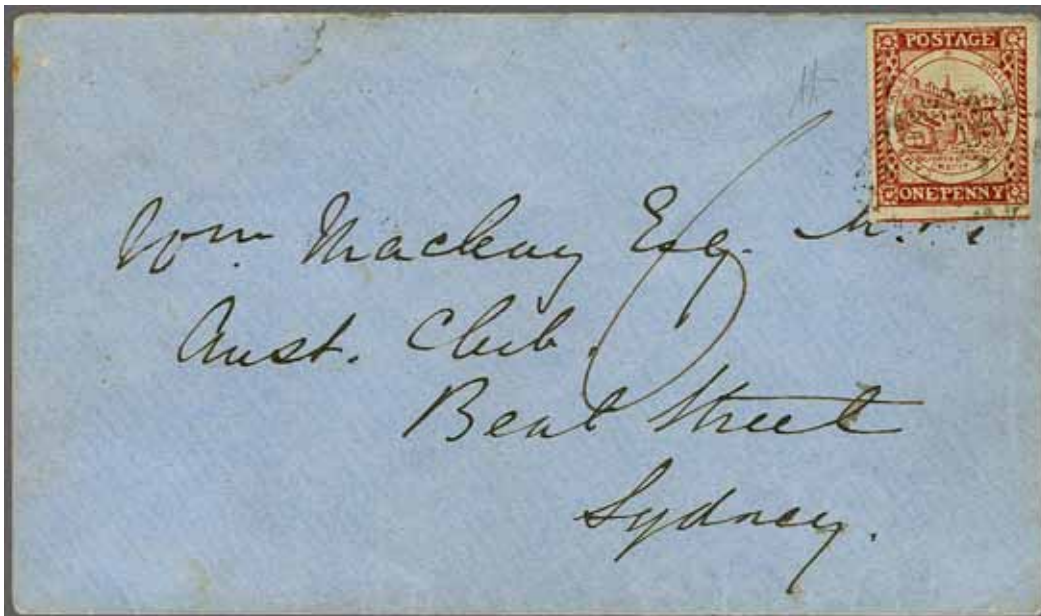 POSTAGE
ONE PENNY
Wm. Mackay Esq.
Aust. Club.
Bent Street
Sydney.